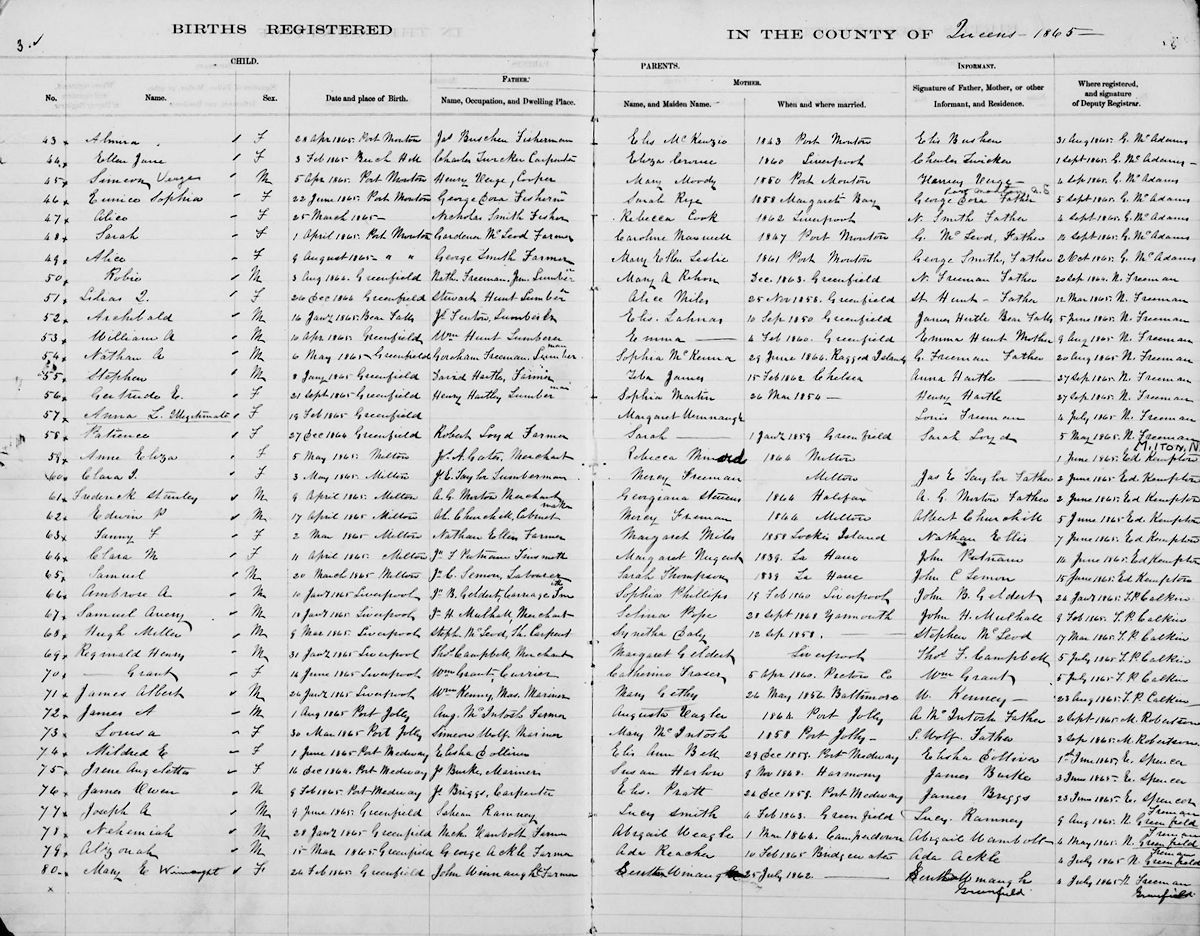 3.
BIRTHS REGISTERED IN THE COUNTY OF Queens - 1865 -
CHILD. PARENTS.
FATHER. MOTHER. INFORMANT. Where registered, and signature of Deputy Registrar.
No. Name. Sex. Date and place of Birth. Name, Occupation, and Dwelling Place. Name, and Maiden Name. When and where married. Signature of Father, Mother, or other Informant, and Residence.
43 Almira F 28 Apr 1865 Port Mouton Jas Buschen Fisherman Elis McKenzie 1863 Port Mouton Elis Bushen 31 Aug 1865 G. McAdams
44 Ellen Jane F 3 Feb 1865 Charles Zwicker Carpenter Eliza Crouse 1860 Liverpool Charles Zwicker 1 Sept 1865 G. McAdams
45 Simeon Verge M 5 Apr 1865 Port Mouton Henry Verge, Cooper Mary Moody 1850 Port Mouton Verge 4 Sep 1865 G. McAdams
46 Eunice Sophia F 22 June 1865 Port Mouton George Fisherm Sarah 1858 Margarets Bay George Father 5 Sept 1865 G. McAdams
47 Alice F 25 March 1865 Nicholas Smith Fisher Rebecca Cook 1862 Liverpool N. Smith Father 4 Sept 1865 G. McAdams
48 Sarah F 1 April 1865 Port Mouton Gardener McLeod Farmer Caroline Maxwell 1847 Port Mouton G. McLeod, Father 12 Sept 1865 G. McAdams
49 Alice F 9 August 1865 " " George Smith Farmer Mary Ellen Leslie 1861 Port Mouton George Smith, Father 2 Oct 1865 G. McAdams
50 Robie M 3 Aug 1864 Greenfield Nath. Freeman, Jun. Lumber Mary A Dec. 1863 Greenfield N. Freeman Father 20 Sep 1864 N. Freeman
51 Lilias F 26 Dec 1864 Greenfield Stewart Hunt Lumber Alice Miles 25 Nov 1858 Greenfield St Hunt - Father 12 Mar 1865 N. Freeman
52 Archibald M 16 Jany 1865 Bear Falls Elis. 10 Sep 1850 Greenfield James Bear Falls 5 June 1865 N. Freeman
53 William A M 10 Apr 1865 Greenfield Wm Hunt Lumberer Emma — 4 Feb 1860 Greenfield Emma Hunt Mother 9 Aug 1865 N. Freeman
54 Nathan A M 6 May 1865 Greenfield Gorham Freeman Lumberman Sophia McKenna 29 June 1864 Ragged Islands G. Freeman Father 20 Aug 1865 N. Freeman
55 Stephen M 8 Jany 1865 Greenfield David Hartle, Farmer James 15 Feb 1862 Chelsea Anna Hartle 27 Sep 1865 N. Freeman
56 Gertrude E. F 21 Sept 1865 Greenfield Henry Hartley Lumberman Sophia Martin 26 Mar 1854 Henry Hartle 27 Sep 1865 N. Freeman
57 Anna L. Illegitimate F 19 Feb 1865 Greenfield Margaret Louis Freeman 4 July 1865 N. Freeman
58 Patience F 27 Dec 1864 Greenfield Robert Loyd Farmer Sarah — 1 Jany 1859 Greenfield Sarah Loyd 5 May 1865 N. Freeman
MILTON, N.
59 Anne Eliza F 5 May 1865 Milton Jas A. Cates, Merchant Rebecca Minard 1864 Milton 1 June 1865 Ed Kempton
60 Clara F 3 May 1865 Milton J. E. Taylor Lumberman Mercy Freeman Milton Jas E Taylor Father 2 June 1865 Ed. Kempton
61 Frederick Stanley M 9 April 1865 Milton A. G. Morton Merchant Georgiana Stevens 1864 Halifax A. G. Morton Father 2 June 1865 Ed. Kempton
62 Edwin P M 17 April 1865 Milton Al. Churchill, Cabinet maker Mercy Freeman 1864 Milton Albert Churchill 5 June 1865 Ed. Kempton
63 Fanny F F 2 Mar 1865 Milton Nathan Ellis Farmer Margaret Miles 1858 Lockes Island Nathan Ellis 7 June 1865 Ed. Kempton
64 Clara M F 11 April 1865 Milton Jn Putnam Margaret Nugent 1839 La Have John Putnam 14 June 1865 Ed Kempton
65 Samuel M 20 March 1865 Milton Jn C. Lemon, Labourer Sarah Thompson 1839 La Have John C Lemon 15 June 1865 Ed Kempton
66 Ambrose A M 10 Jany 1865 Liverpool Jn B. Geldert, Carriage Sophia Phillips 19 Feb 1860 Liverpool John B. Geldert 24 Jany 1865 T. P. Calkin
67 Samuel Avery M 18 Jany 1865 Liverpool J. H. Mulhall, Merchant Selina Pope 28 Sept 1848 Yarmouth John H. Mulhall 9 Feb 1865 T. P. Calkin
68 Hugh Miller M 9 Mar 1865 Liverpool Steph. McLeod, Sh. Carpent Synitha Daly 12 Sep 1858 Stephen McLeod 17 Mar 1865 T. P. Calkin
69 Reginald Henry M 31 Jany 1865 Liverpool Thos Campbell, Merchant Margaret Geldert Liverpool Thos F. Campbell 5 July 1865 T. P. Calkin
70 — Grant F 14 June 1865 Liverpool Wm Grant, Currier Catherine Fraser 5 Apr 1860 Pictou Co Wm Grant 5 July 1865 T. P. Calkin
71 James Albert M 26 Jany 1865 Liverpool Wm Kenney, Mas. Mariner Mary 26 May 1856 Baltimore W. Kenney 23 Aug 1865 T. P. Calkin
72 James A M 1 Aug 1865 Port Jolly Aug. McIntosh Farmer Augusta 1864 Port Jolly A McIntosh Father 2 Sept 1865 M. Robertson
73 Louisa F 30 Mar 1865 Port Jolly Simeon Wolf Mariner Mary McIntosh 1858 Port Jolly S. Wolf. Father 3 Sep 1865 M. Robertson
74 Mildred E F 1 June 1865 Port Medway Elisha Colliver Elis Ann Bell 29 Dec 1859 Port Medway Elisha Colliver 1st June 1865 E. Spencer
75 Irene Angeletta F 16 Dec 1864 Port Medway Js Burke, Mariner Susan Harlow 9 Nov 1848 Harmony James Burke 3 June 1865 E. Spencer
76 James Owen M 9 Feb 1865 Port Medway Js Briggs, Carpenter Elis. Pratt 26 Dec 1859 Port Medway James Briggs 23 June 1865 E. Spencer
77 Joseph A M 9 June 1865 Greenfield Ramney Lucy Smith 4 Feb 1863 Greenfield Lucy Ramney 9 Aug 1865 N. Freeman Greenfield
78 Nehemiah M 28 Jany 1865 Greenfield Wambolt Farmer Abigail Veagle 1 Mar 1864 Abigail Wambolt 4 May 1865 N. Freeman Greenfield
79 Alzonah M 15 Mar 1865 Greenfield George Ackle Farmer Ada 10 Feb 1865 Bridgewater Ada Ackle 4 July 1865 N. Freeman Greenfield
80 Mary E F 26 Feb 1865 Greenfield John Farmer 25 July 1862 Greenfield 4 July 1865 N Freeman Greenfield